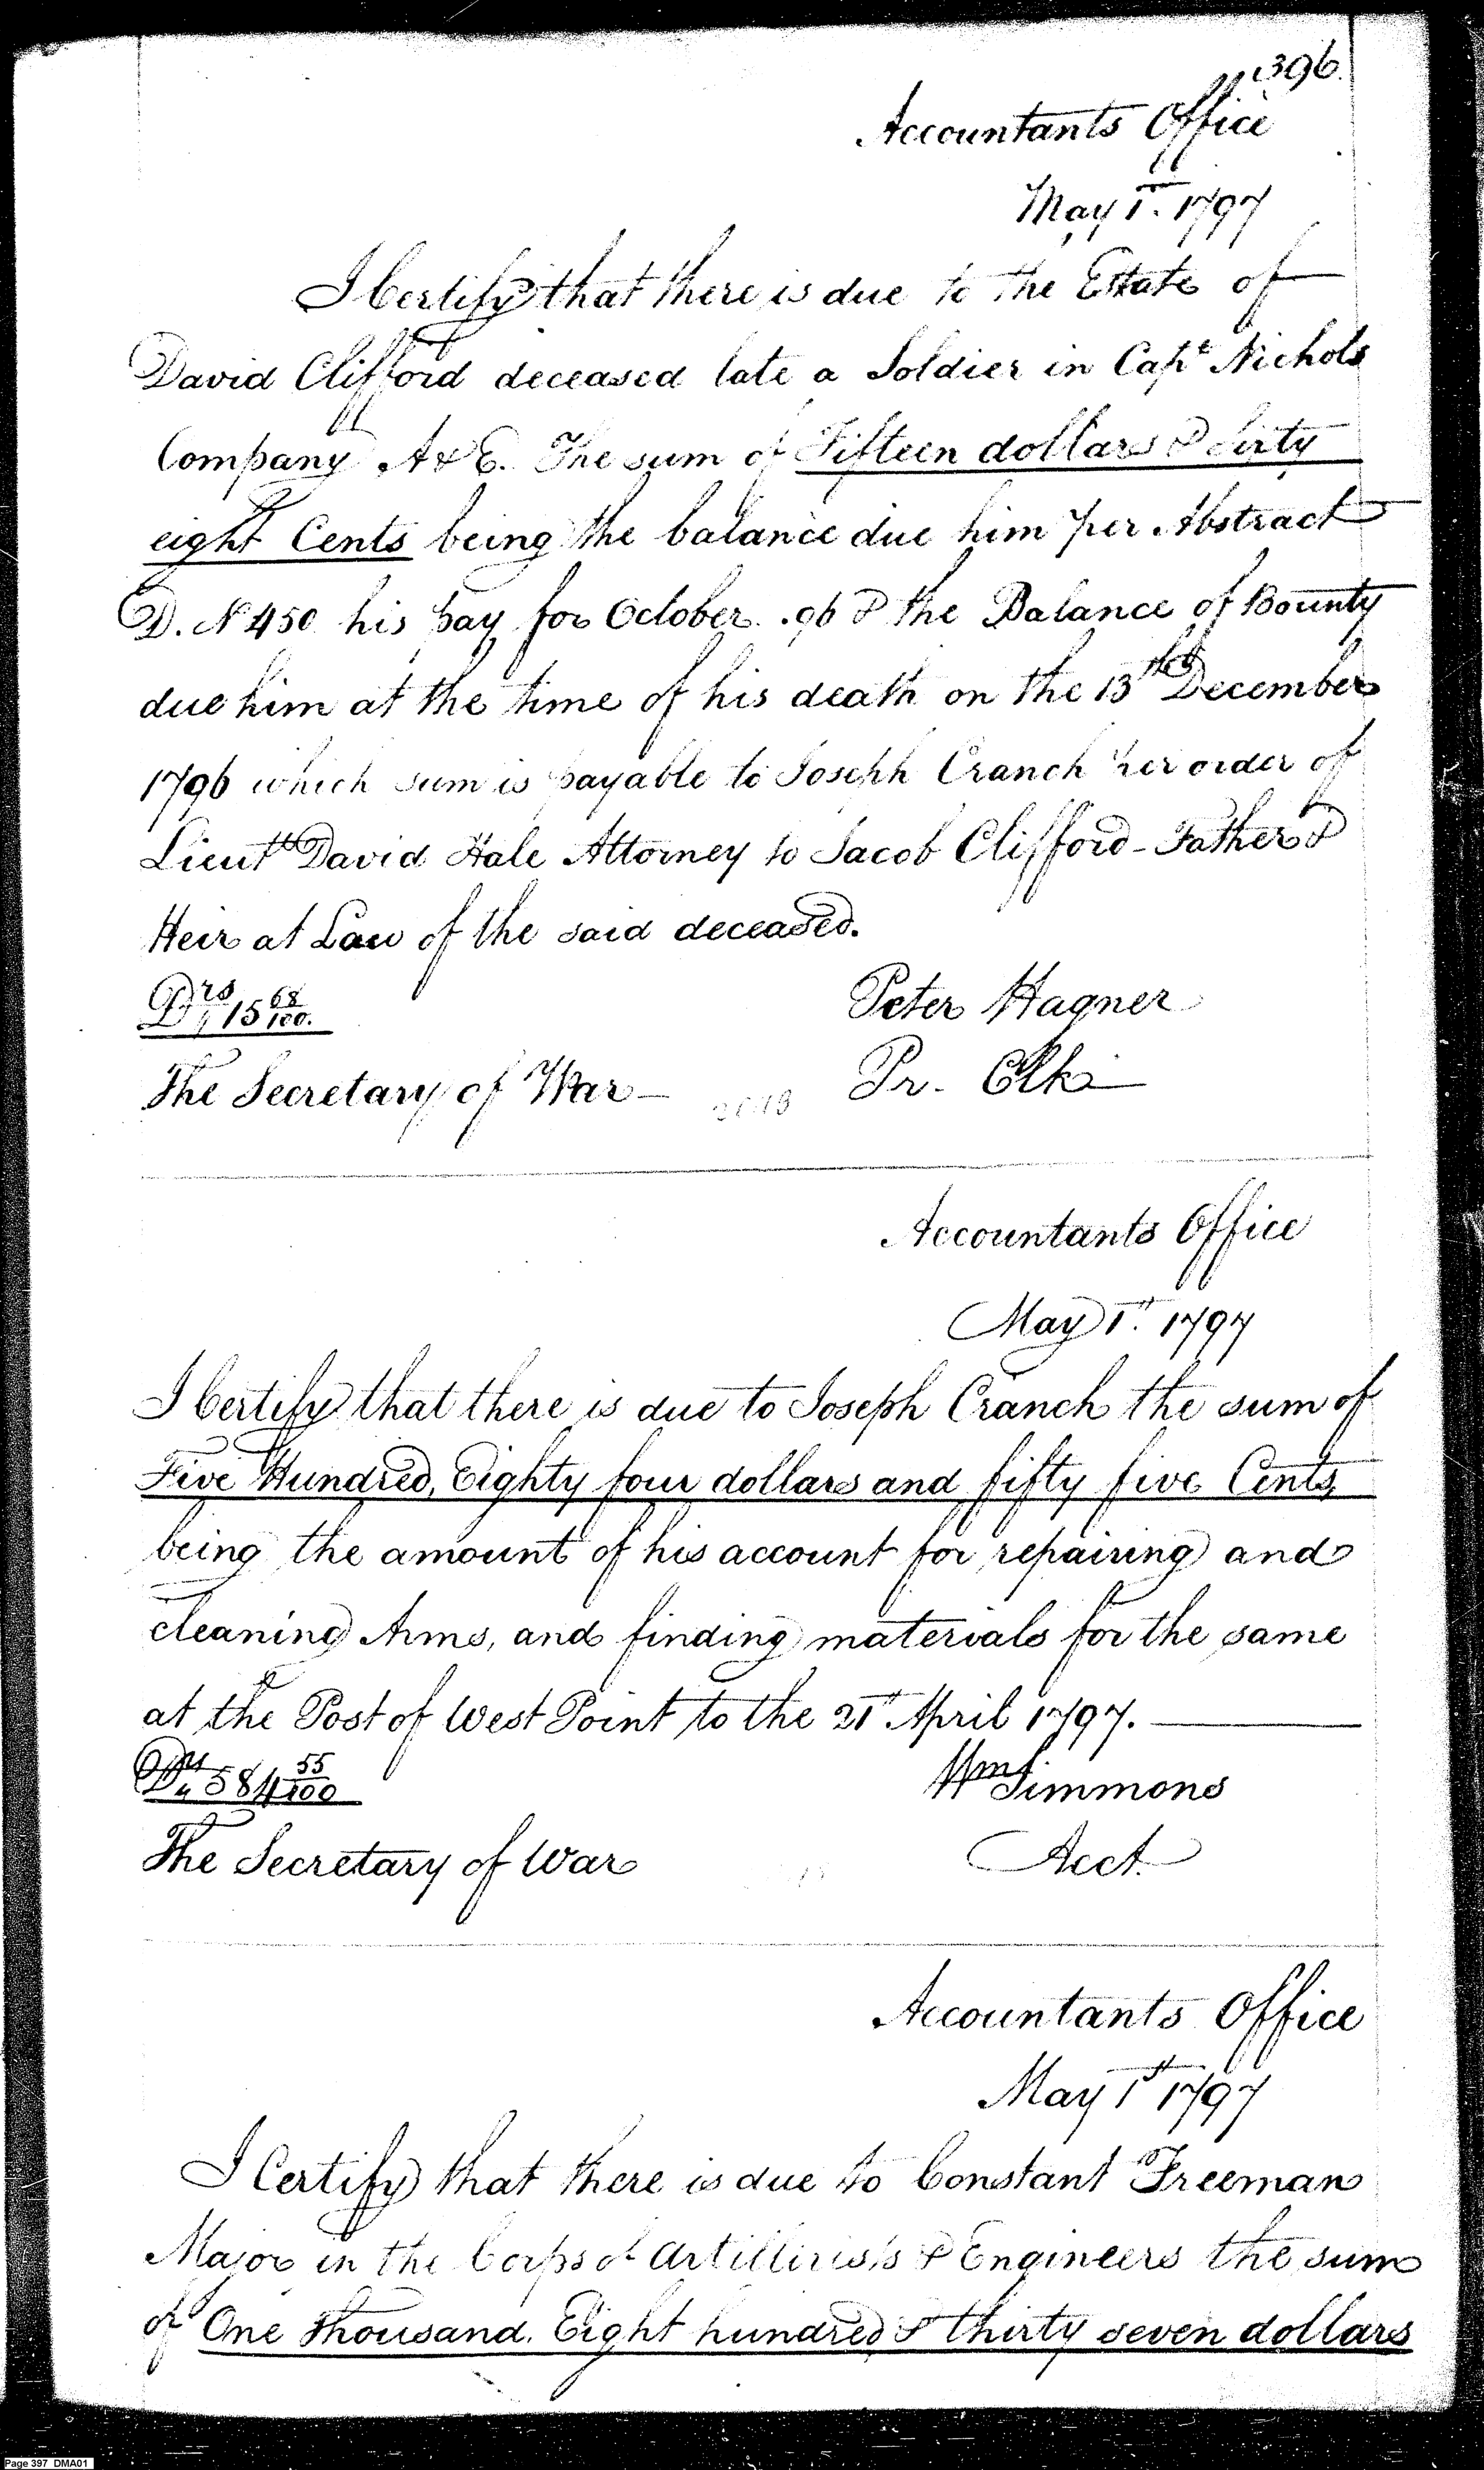 396.
Accountants Office
May 1st. 1797
I Certify that there is due to the Estate of
David Clifford deceased late a Soldier in Capt Nichols
Company A & E. The sum of Fifteen dollars & sixty
eight Cents being the balance due him per Abstract
D. No 450 his pay for October . 96 & the Balance of Bounty
due him at the time of his death on the 13th December
1796 which sum is payable to Joseph Cranch per order of
Lieutt David Hale Attorney to Jacob Clifford - Father &
Heir at Law of the said deceased.
Drs 15 68/100.
Peter Hagner
The Secretary of War —
Pr. Clk
Accountants Office
May 1st. 1797
I Certify that there is due to Joseph Cranch the sum of
Five Hundred, Eighty four dollars and fifty five Cents,
being the amount of his account for repairing and
cleaning Arms, and finding materials for the same
at the Post of West Point to the 21st April 1797. —
Drs 584 55/100
Wm Simmons
The Secretary of War
Acct.
Accountants Office
May 1st 1797
I Certify that there is due to Constant Freeman
Major in the Corps of Artillirists & Engineers the sum
of One thousand. Eight hundred & thirty seven dollars
Page 397 DMA01